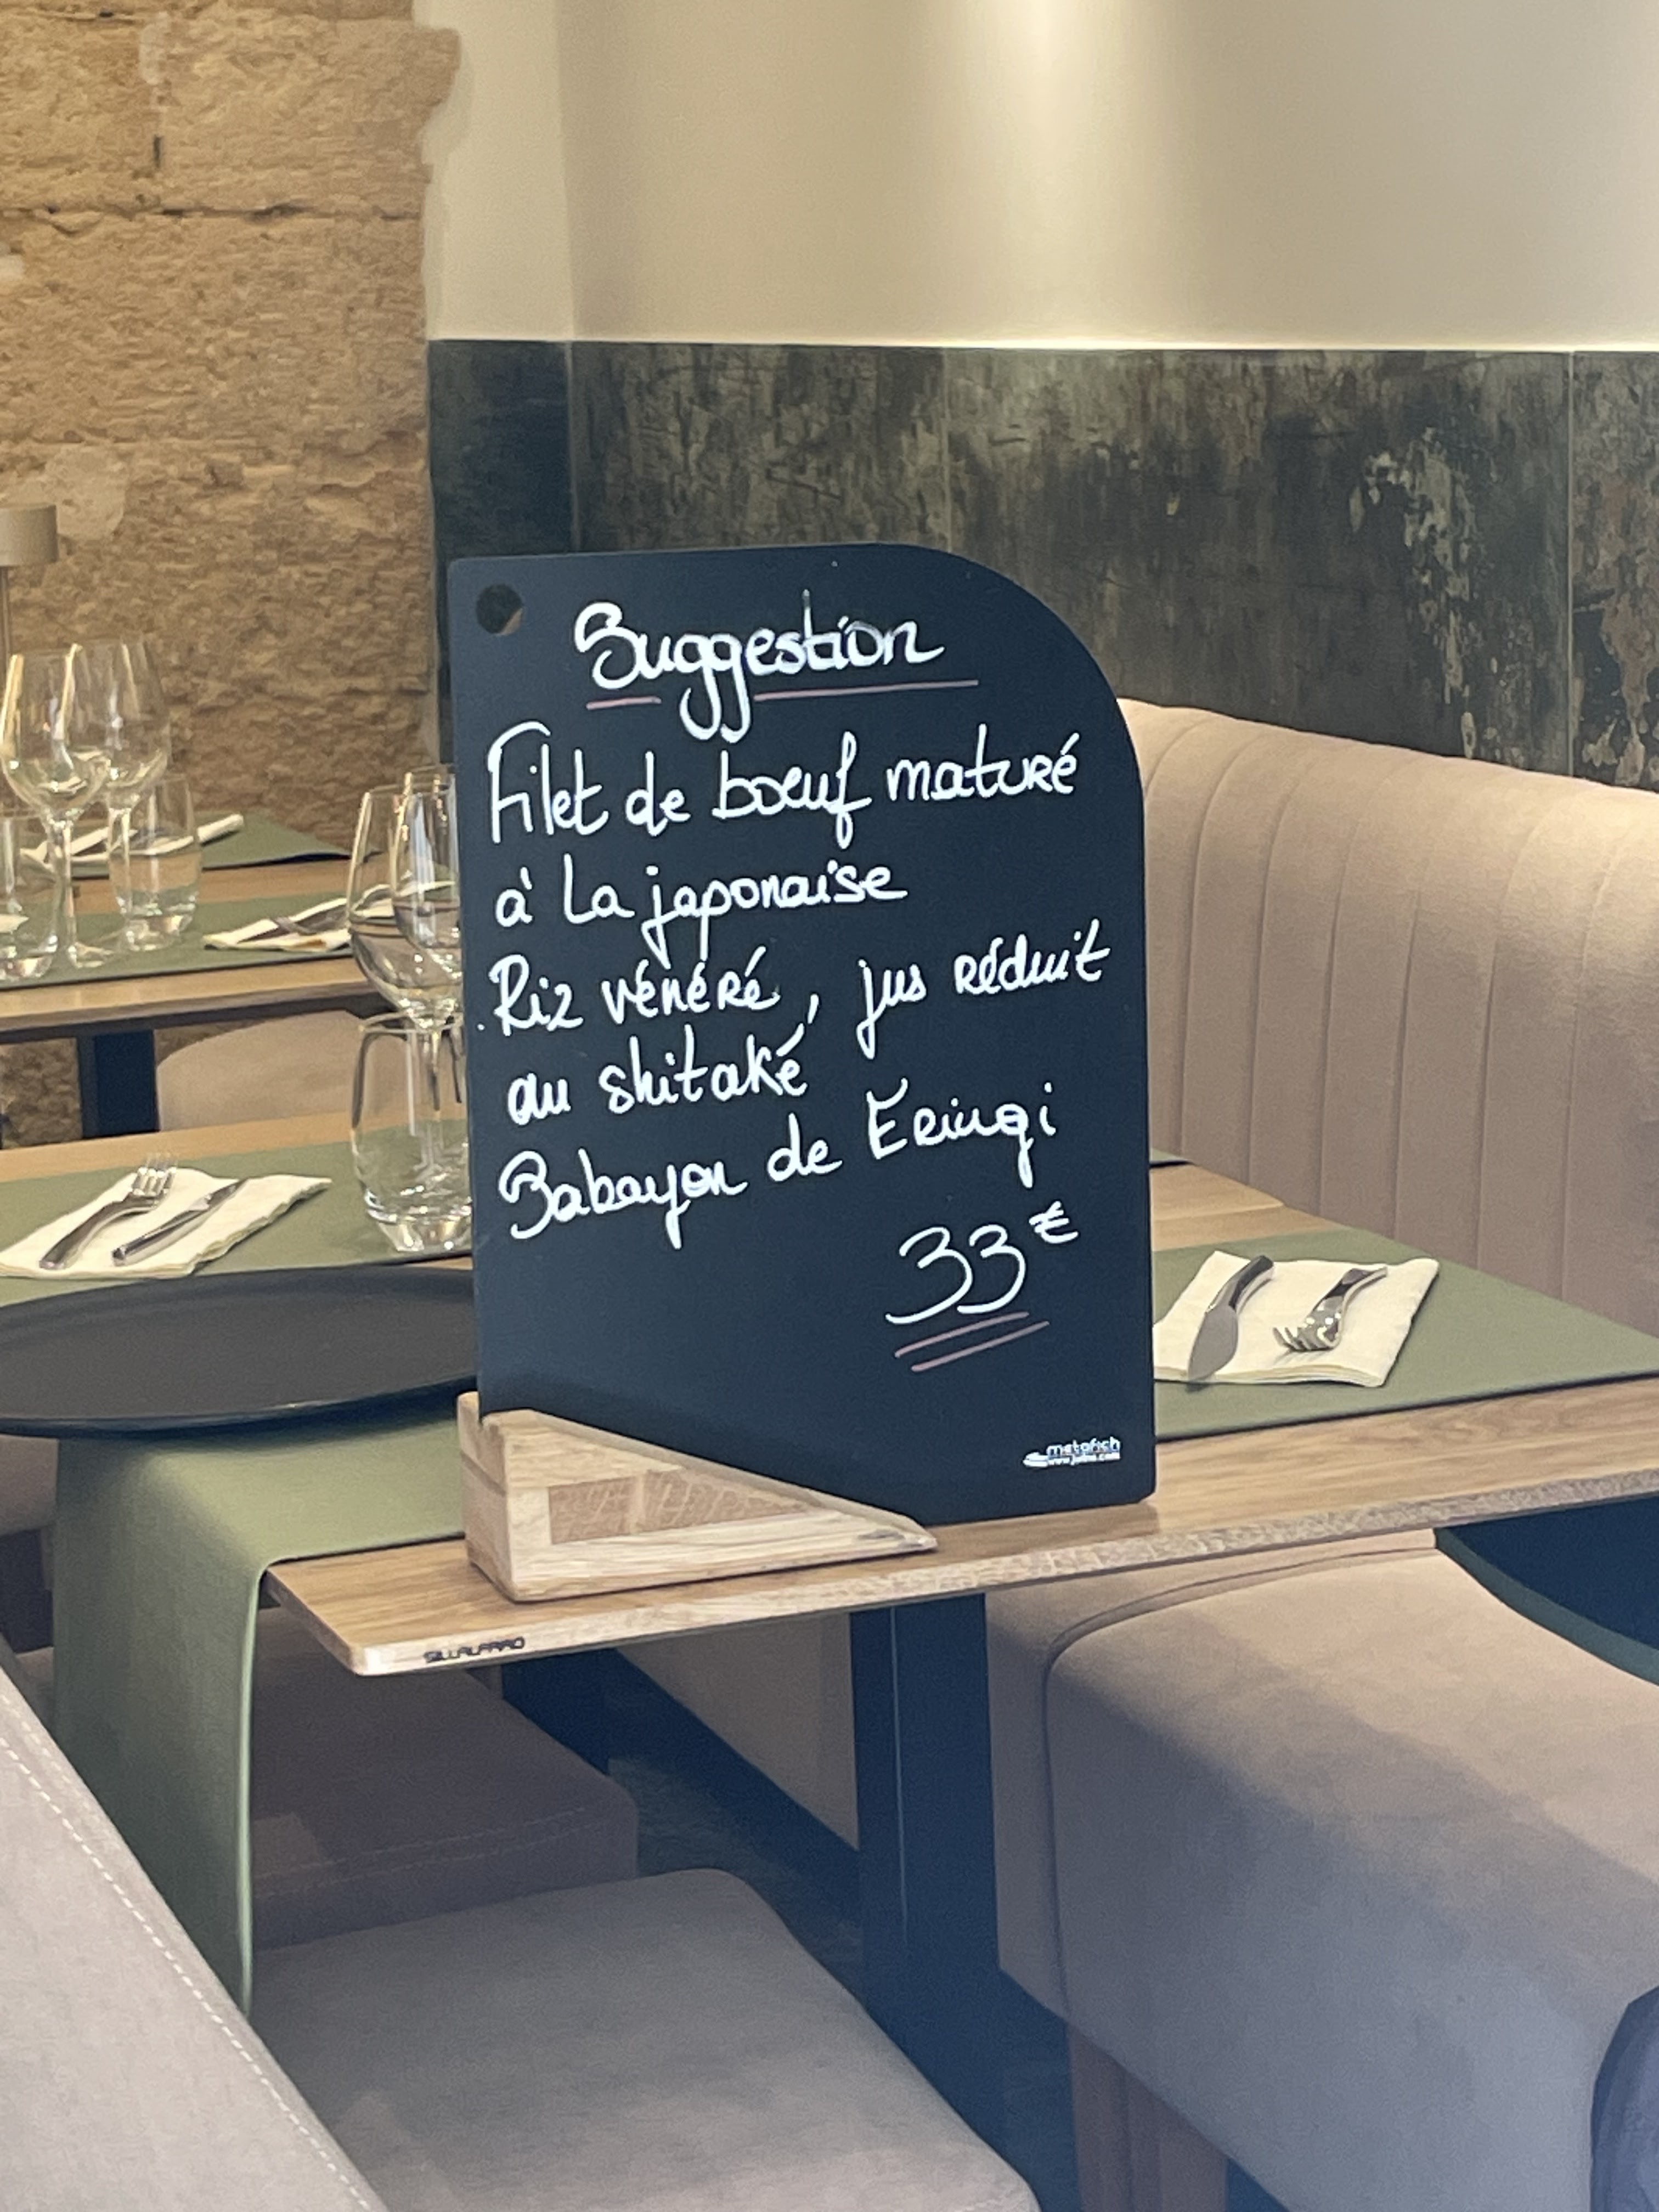 Suggestion
Filet de boeuf maturé
à la japonaise
Riz vénéré, jus réduit
au shitaké
Babayon de Eringi
33€
metafich